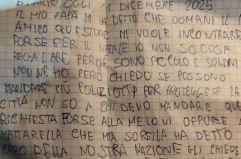 DIARIO OGGI 1 DICEMBRE 2025
IL MIO PAPÀ MI HA DETTO CHE DOMANI IL
AMICO QUESTORE MI VUOLE INCONTRARE
FORSE PER IL NATALE IO NON SO COSA
REGALARE PERCHÉ SONO PICCOLO E SOLDINI
NON NE HO PERÒ CHIEDO SE POSSONO
MANDARE PIÙ POLIZIOTTI PER PROTEGGERE LA
CITTÀ NON SO A CHI DEVO MANDARE QUE
RICHIESTA FORSE ALLA MELONI OPPURE A
MATTARELLA CHE MIA SORELLA HA DETTO
CAPO DELLA NOSTRA NAZIONE GLI CHIEDE